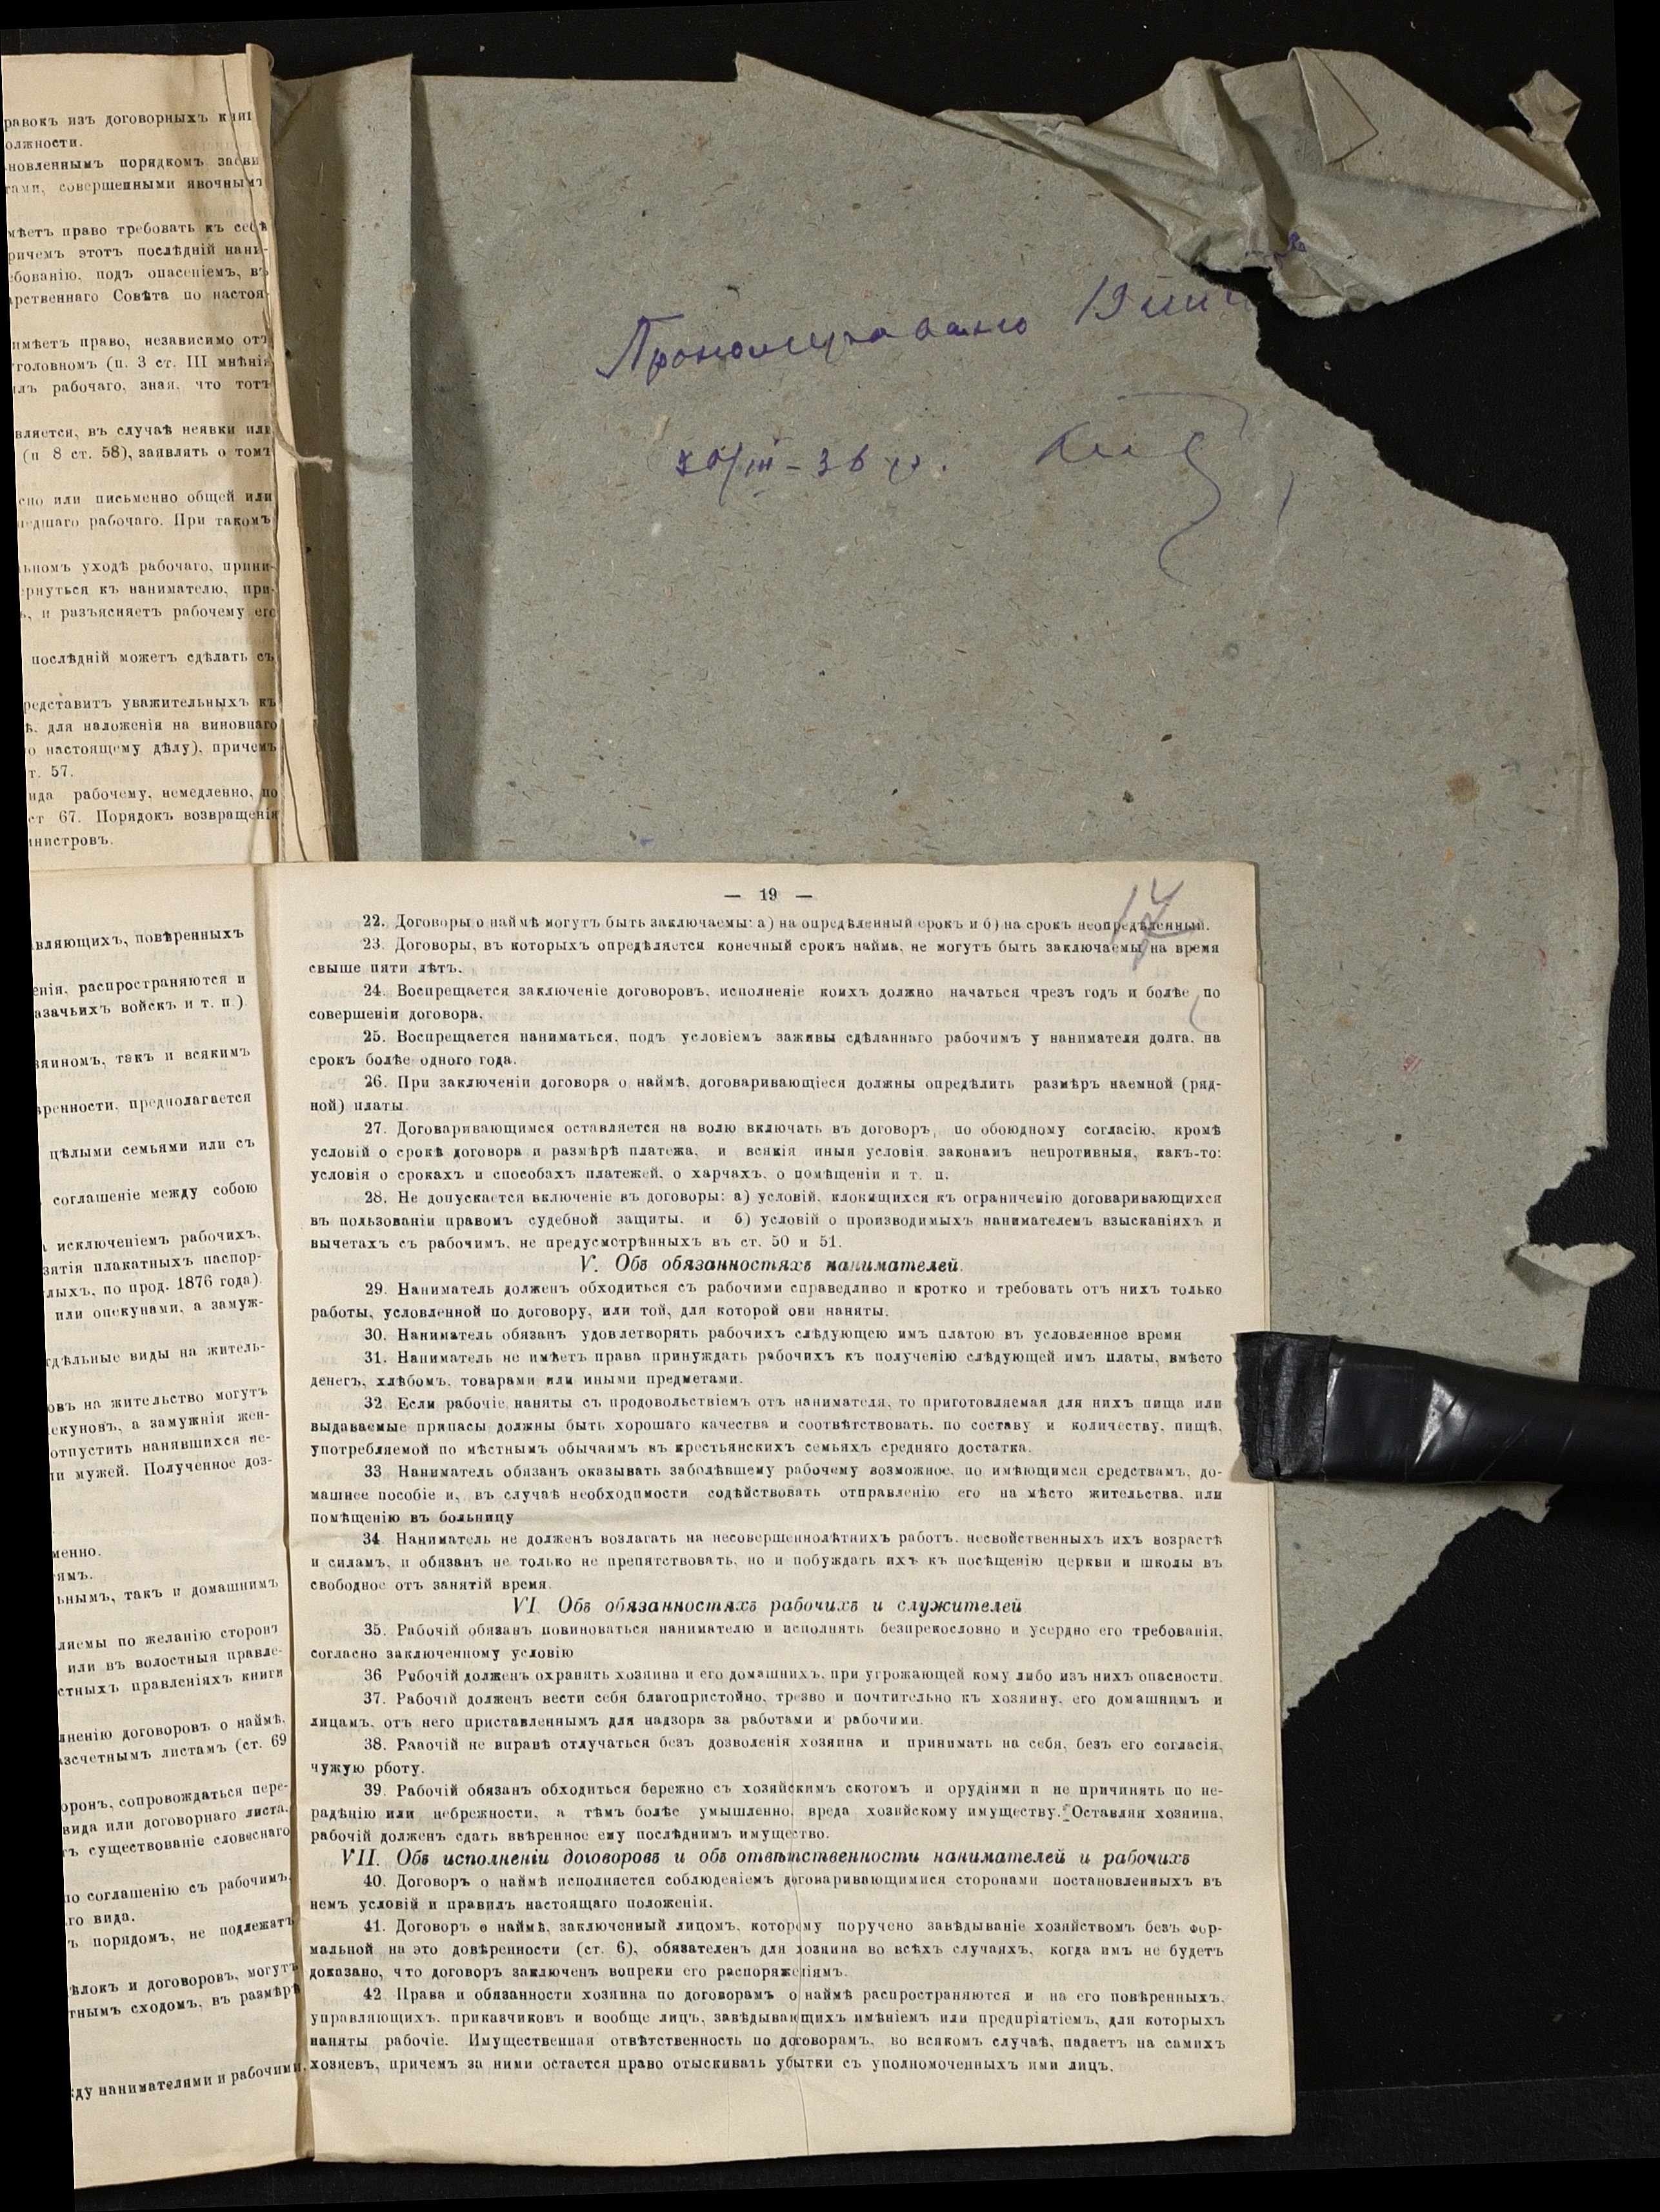 равокъ изъ договорныхъ книг
олжности.
новленнымъ порядкомъ засви
тами, совершенными явочнымъ
мѣетъ право требовать къ себѣ
ричемъ этотъ послѣдній нани-
бованію, подъ опасеніемъ, въ
арственнаго Совѣта по настоя-
имѣетъ право, независимо отъ
головномъ (п. 3 ст. III мнѣнія
илъ рабочаго, зная, что тотъ
вляется, въ случаѣ неявки или
(п 8 ст. 58), заявлять о томъ
сно или письменно общей или
шедшаго рабочаго. При такомъ
ьномъ уходѣ рабочаго, прини-
рнуться къ нанимателю, при-
ь, и разъясняетъ рабочему его
послѣдній можетъ сдѣлать съ
редставитъ уважительныхъ къ
ѣ. для наложенія на виновнаго
о настоящему дѣлу), причемъ
т. 57.
ида рабочему, немедленно, по
ст 67. Порядокъ возвращенія
инистровъ.
Прономеровано 19
вляющихъ, повѣренныхъ
енія, распространяются и
азачьихъ войскъ и т. п.)
зяиномъ, такъ и всякимъ
вренности, предполагается
цѣлыми семьями или съ
соглашеніе между собою
исключеніемъ рабочихъ,
зятія плакатныхъ паспор-
лыхъ, по прод. 1876 года).
или опекунами, а замуж-
тдѣльные виды на житель-
овъ на жительство могутъ
екуновъ, а замужнія жен-
отпустить нанявшихся не-
ли мужей. Полученное доз-
менно.
ямъ.
ьнымъ, такъ и домашнимъ
ляемы по желанію сторонъ
или въ волостныя правле-
стныхъ правленіяхъ книги
лненію договоровъ о наймѣ,
азсчетнымъ листамъ (ст. 69
оронъ, сопровождаться пере-
вида или договорнаго листа,
ъ существованіе словеснаго
по соглашенію съ рабочимъ,
го вида.
ъ порядомъ, не подлежатъ
ѣлокъ и договоровъ, могутъ
тнымъ сходомъ, въ размѣрѣ
жду нанимателями и рабочими,
— 19 —
22. Договоры о наймѣ могутъ быть заключаемы: а) на опредѣленный срокъ и б) на срокъ неопредѣленный.
23. Договоры, въ которыхъ опредѣляется конечный срокъ найма, не могутъ быть заключаемы на время
свыше пяти лѣтъ.
24. Воспрещается заключеніе договоровъ, исполненіе коихъ должно начаться чрезъ годъ и болѣе по
совершеніи договора.
25. Воспрещается наниматься, подъ условіемъ заживы сдѣланнаго рабочимъ у нанимателя долга, на
срокъ болѣе одного года.
26. При заключеніи договора о наймѣ, договаривающіеся должны опредѣлить размѣръ наемной (ряд-
ной) платы.
27. Договаривающимся оставляется на волю включать въ договоръ, по обоюдному согласію, кромѣ
условій о срокѣ договора и размѣрѣ платежа, и всякія иныя условія законамъ непротивныя, какъ-то:
условія о срокахъ и способахъ платежей, о харчахъ, о помѣщеніи и т. п.
28. Не допускается включеніе въ договоры: а) условій, клонящихся къ ограниченію договаривающихся
въ пользованіи правомъ судебной защиты, и б) условій о производимыхъ нанимателемъ взысканіяхъ и
вычетахъ съ рабочимъ, не предусмотрѣнныхъ въ ст. 50 и 51.
V. Объ обязанностяхъ нанимателей.
29. Наниматель долженъ обходиться съ рабочими справедливо и кротко и требовать отъ нихъ только
работы, условленной по договору, или той, для которой они наняты.
30. Наниматель обязанъ удовлетворять рабочихъ слѣдующею имъ платою въ условленное время
31. Наниматель не имѣетъ права принуждать рабочихъ къ полученію слѣдующей имъ платы, вмѣсто
денегъ, хлѣбомъ, товарами или иными предметами.
32 Если рабочіе наняты съ продовольствіемъ отъ нанимателя, то приготовляемая для нихъ пища или
выдаваемые припасы должны быть хорошаго качества и соотвѣтствовать, по составу и количеству, пищѣ,
употребляемой по мѣстнымъ обычаямъ въ крестьянскихъ семьяхъ средняго достатка.
33 Наниматель обязанъ оказывать заболѣвшему рабочему возможное, по имѣющимся средствамъ, до-
машнее пособіе и, въ случаѣ необходимости содѣйствовать отправленію его на мѣсто жительства, или
помѣщенію въ больницу
34. Наниматель не долженъ возлагать на несовершеннолѣтнихъ работъ, несвойственныхъ ихъ возрастѣ
и силамъ, и обязанъ не только не препятствовать, но и побуждать ихъ къ посѣщенію церкви и школы въ
свободное отъ занятій время.
VI. Объ обязанностяхъ рабочихъ и служителей
35. Рабочій обязанъ повиноваться нанимателю и исполнять безпрекословно и усердно его требованія,
согласно заключенному условію
36 Рабочій долженъ охранять хозяина и его домашнихъ, при угрожающей кому либо изъ нихъ опасности.
37. Рабочій долженъ вести себя благопристойно, трезво и почтительно къ хозяину, его домашнимъ и
лицамъ, отъ него приставленнымъ для надзора за работами и рабочими.
38. Рабочій не вправѣ отлучаться безъ дозволенія хозяина и принимать на себя, безъ его согласія,
чужую рботу.
39. Рабочій обязанъ обходиться бережно съ хозяйскимъ скотомъ и орудіями и не причинять по не-
радѣнію или небрежности, а тѣмъ болѣе умышленно, вреда хозяйскому имуществу. Оставляя хозяина,
рабочій долженъ сдать ввѣренное ему послѣднимъ имущество.
VII. Объ исполненіи договоровъ и объ отвѣтственности нанимателей и рабочихъ
40. Договоръ о наймѣ исполняется соблюденіемъ договаривающимися сторонами постановленныхъ въ
немъ условій и правилъ настоящаго положенія.
41. Договоръ о наймѣ, заключенный лицомъ, которому поручено завѣдываніе хозяйствомъ безъ фор-
мальной на это довѣренности (ст. 6), обязателенъ для хозяина во всѣхъ случаяхъ, когда имъ не будетъ
доказано, что договоръ заключенъ вопреки его распоряженіямъ.
42 Права и обязанности хозяина по договорамъ о наймѣ распространяются и на его повѣренныхъ,
управляющихъ, приказчиковъ и вообще лицъ, завѣдывающихъ имѣніемъ или предпріятіемъ, для которыхъ
наняты рабочіе. Имущественная отвѣтственность по договорамъ, во всякомъ случаѣ, падаетъ на самихъ
хозяевъ, причемъ за ними остается право отыскивать убытки съ уполномоченныхъ ими лицъ.